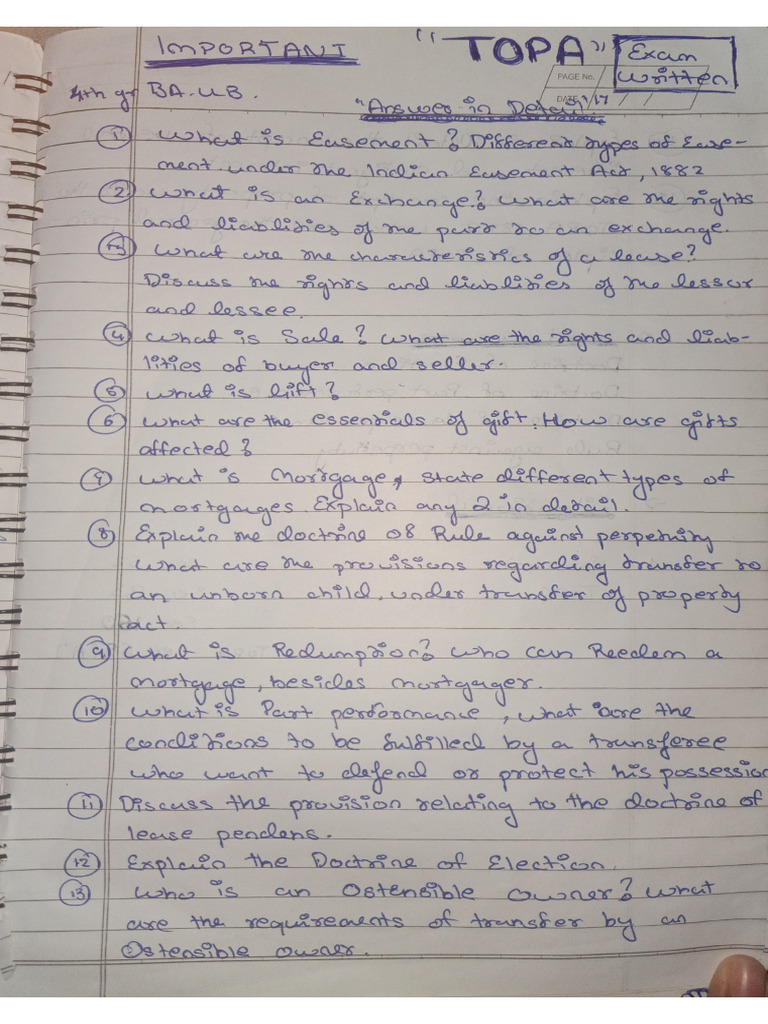 IMPORTANT "TOPA" Exam written
PAGE No.
DATE
4th yr BA.LLB.
"Answer in Detail"
1 What is Easement? Different types of Ease-
ment under the Indian Easement Act, 1882
2 What is an Exchange? What are the rights
and liablities of the part to an exchange.
3 What are the characteristics of a lease?
Discuss the rights and liablities of the lessor
and lessee.
4 What is Sale? What are the rights and liab-
lities of buyer and seller.
5 What is Gift?
6 What are the essentials of gift. How are gifts
affected?
7 What is Mortgage, state different types of
mortgages. Explain any 2 in detail.
8 Explain the doctrine of Rule against perpetuity
What are the provisions regarding transfer to
an unborn child, under transfer of property
act.
9 What is Redumption? Who can Reedem a
mortgage, besides mortgager.
10 What is Part performance, what are the
conditions to be fulfilled by a transferee
who want to defend or protect his possession
11 Discuss the provision relating to the doctrine of
lease pendens.
12 Explain the Doctrine of Election.
13 Who is an Ostensible owner? What
are the requirements of transfer by an
Ostensible owner.